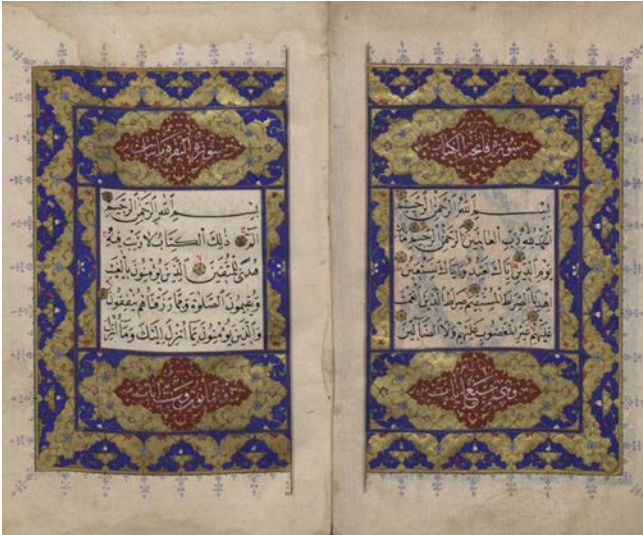 سورة فاتحة الكتاب
بِسْمِ اللهِ الرَّحْمٰنِ الرَّحِيمِ
اَلْحَمْدُ لِلّٰهِ رَبِّ الْعَالَمِينَ الرَّحْمٰنِ الرَّحِيمِ مَالِكِ
يَوْمِ الدِّينِ اِيَّاكَ نَعْبُدُ وَاِيَّاكَ نَسْتَعِينُ
اِهْدِنَا الصِّرَاطَ الْمُسْتَقِيمَ صِرَاطَ الَّذِينَ اَنْعَمْتَ
عَلَيْهِمْ غَيْرِ الْمَغْضُوبِ عَلَيْهِمْ وَلَا الضَّالِّينَ
وهي سبع ايات
سورة البقرة مايتان
بِسْمِ اللهِ الرَّحْمٰنِ الرَّحِيمِ
الٓمٓ ذٰلِكَ الْكِتَابُ لَا رَيْبَ فِيهِ
هُدًى لِلْمُتَّقِينَ اَلَّذِينَ يُؤْمِنُونَ بِالْغَيْبِ
وَيُقِيمُونَ الصَّلٰوةَ وَمِمَّا رَزَقْنَاهُمْ يُنْفِقُونَ
وَالَّذِينَ يُؤْمِنُونَ بِمَا اُنْزِلَ اِلَيْكَ وَمَا اُنْزِلَ
وثمانون وست ايات